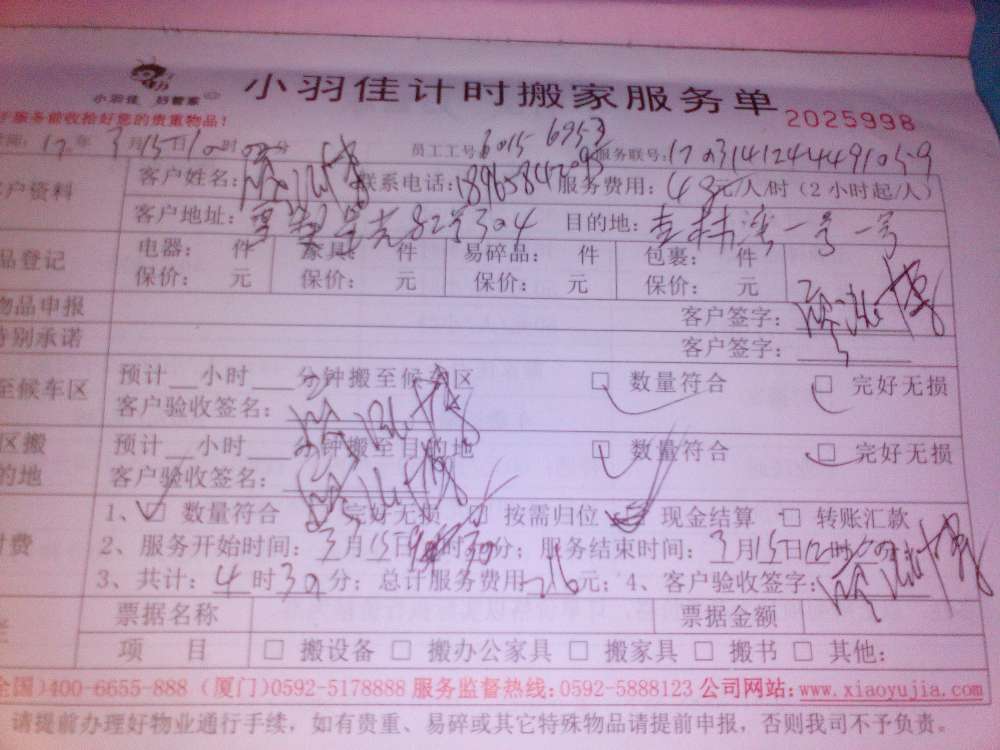 小羽佳计时搬家服务单
小羽佳 好管家
服务能收拾好您的贵重物品! 2025998
17年3月15日10时00分 员工工号:6015 6953 服务联号:
户资料 客户姓名: 联系电话: 服务费用:48元/人/时(2小时起/人)
客户地址: 目的地:杏林湾一号一号
品登记 电器: 件 家具: 件 易碎品: 件 包裹: 件
保价: 元 保价: 元 保价: 元 保价: 元
物品申报 客户签字:
特别承诺 客户签字:
至候车区 预计__小时__分钟搬至候车区 □ 数量符合 □ 完好无损
客户验收签名:
区搬 预计__小时__分钟搬至目的地 □ 数量符合 □ 完好无损
的地 客户验收签名:
1、□ 数量符合 □ 完好无损 □ 按需归位 □ 现金结算 □ 转账汇款
付费 2、服务开始时间:3月15日 时30分;服务结束时间:3月15日 时 分
3、共计:4时30分;总计服务费用216元;4、客户验收签字:
票据名称 票据金额
项 目 □ 搬设备 □ 搬办公家具 □ 搬家具 □ 搬书 □ 其他:
全国)400-6655-888 (厦门)0592-5178888 服务监督热线:0592-5888123 公司网站:www.xiaoyujia.com
请提前办理好物业通行手续,如有贵重、易碎或其它特殊物品请提前申报,否则我司不予负责。